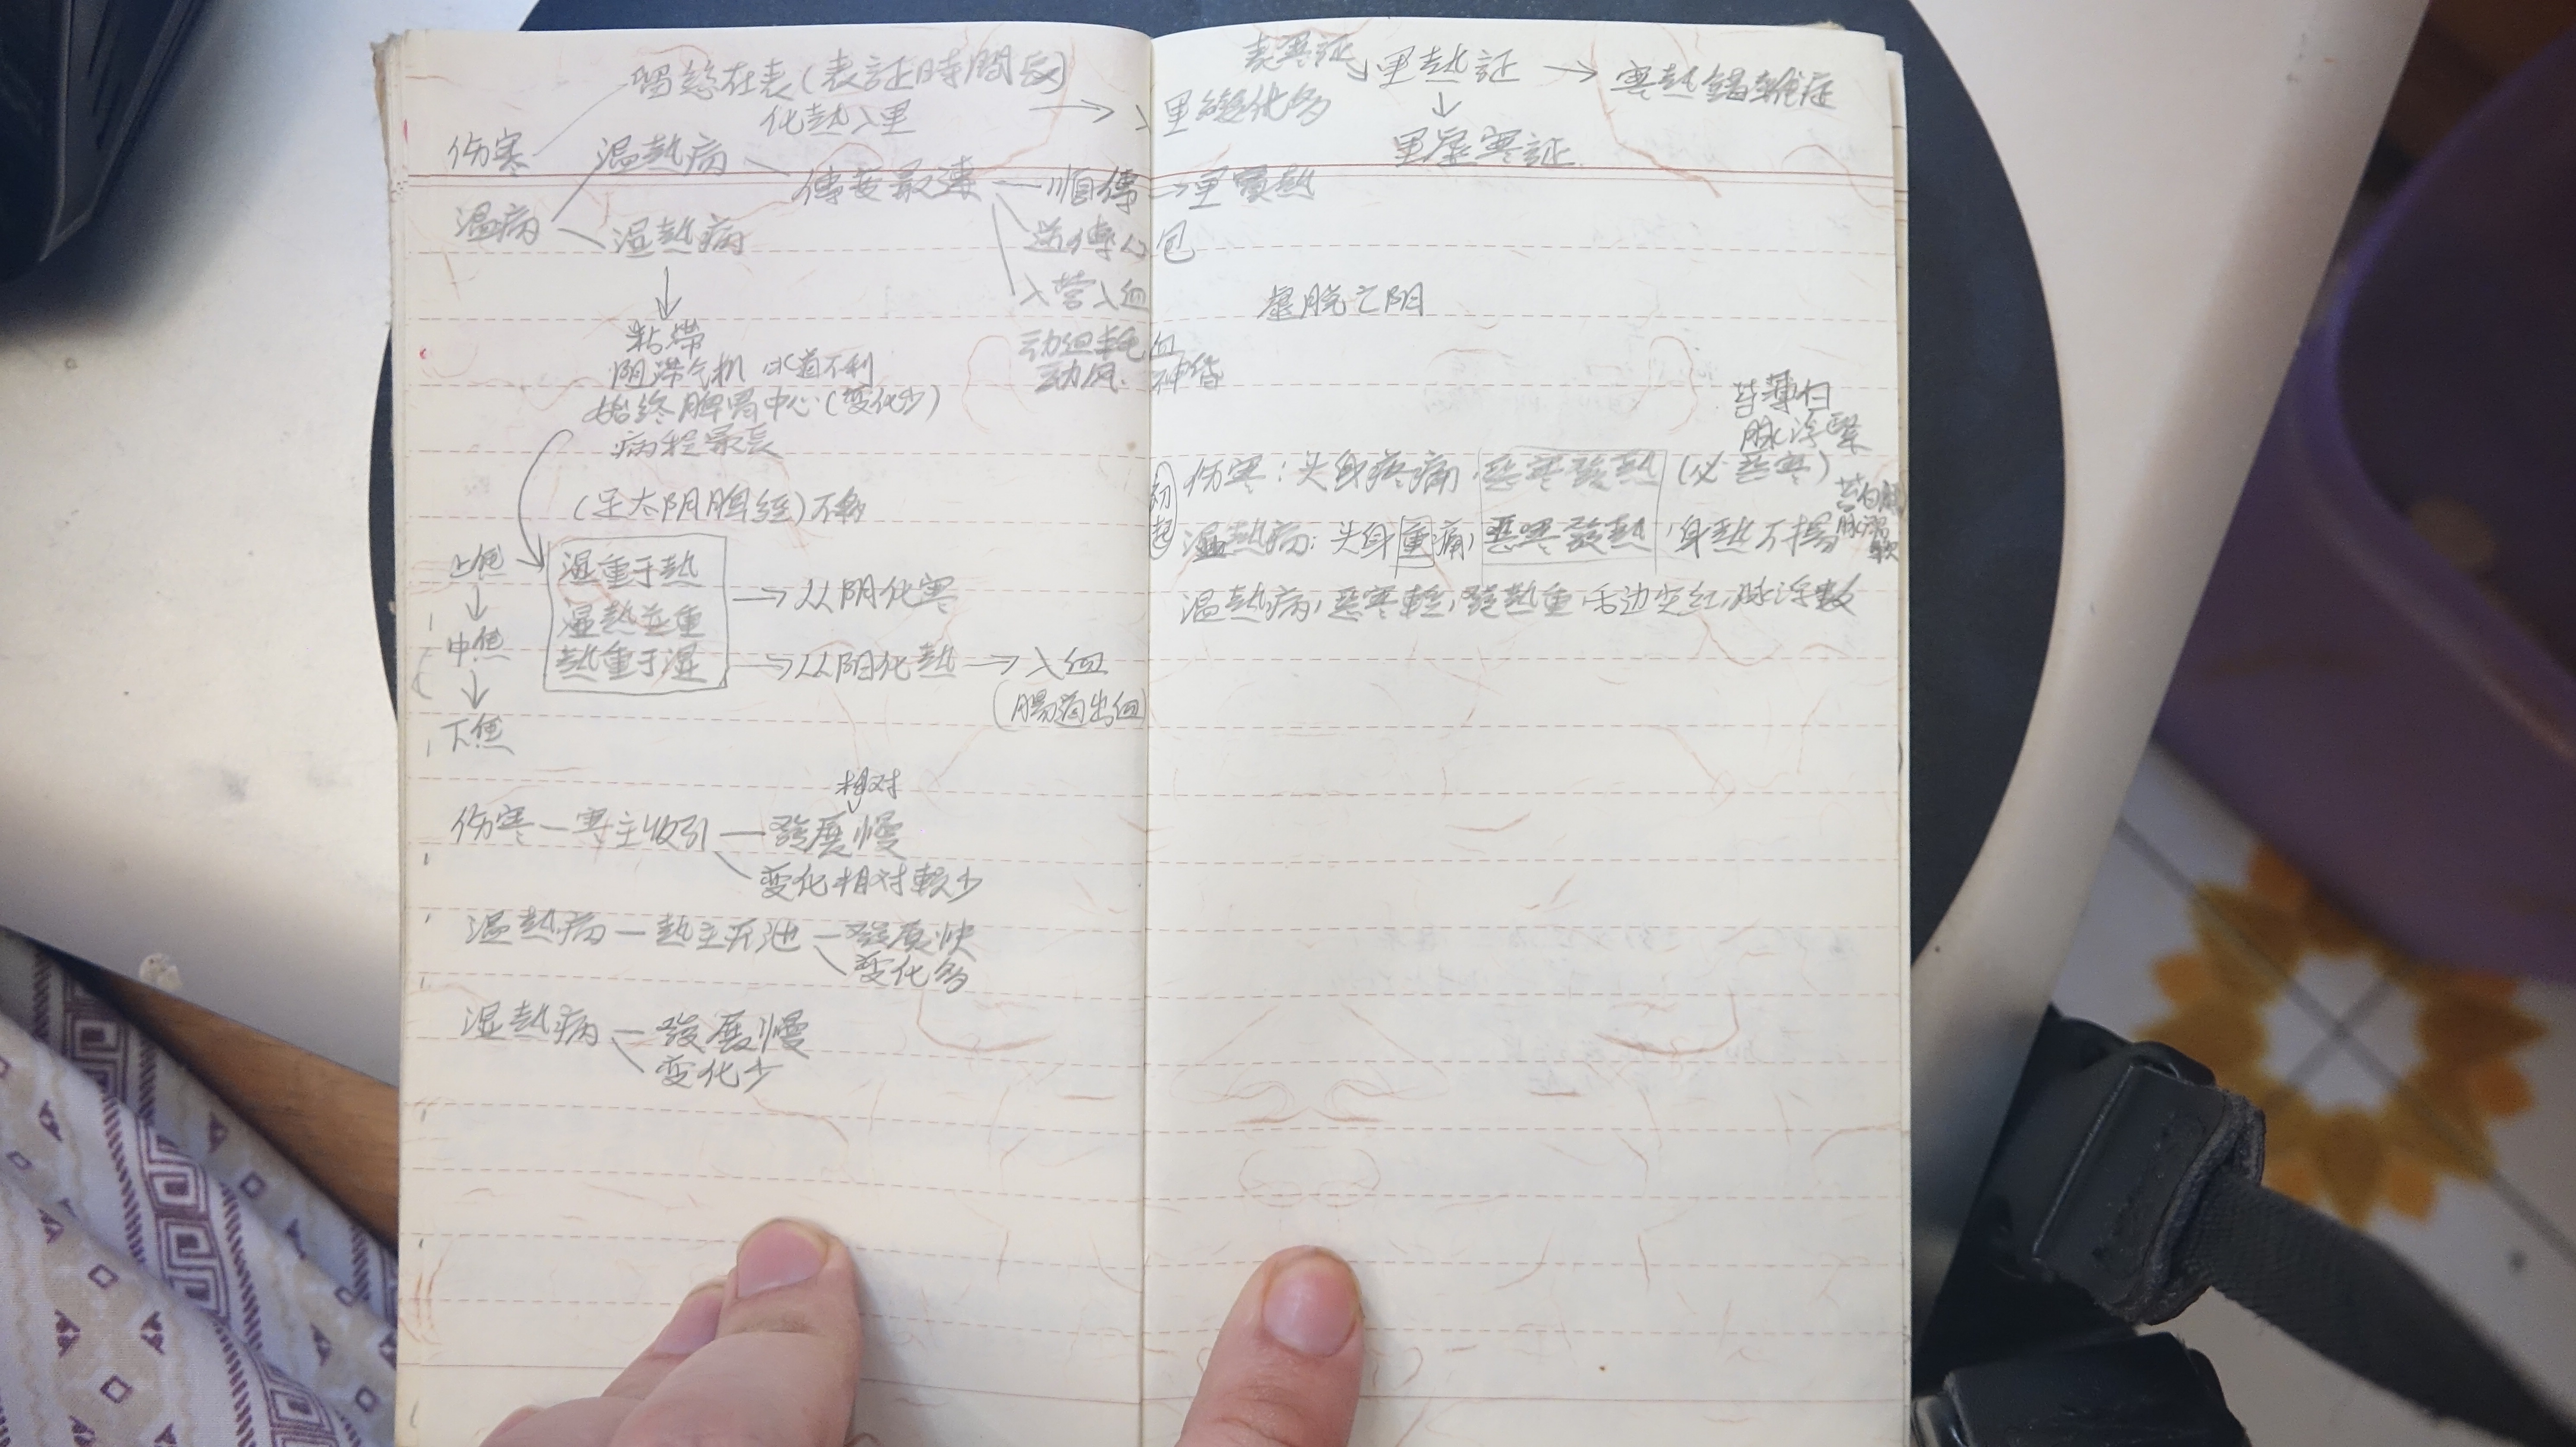 留戀在表(表証時間長)
化熱入里 → 入里變化多
表寒証 → 里熱証 → 寒熱錯雜症
↓
里虛寒証
伤寒
温病
温熱病 傳变最速 — 順傳 → 里實熱
逆傳心包
入营入血
动血耗血
动风 神昏
虛脱亡阴
湿熱病
↓
粘滞
阻滞气机 水道不利
始終脾胃中心(变化少)
病程最長
(足太阴脾經)
上焦
↓
中焦
↓
下焦
湿重于熱
湿熱並重
熱重于湿
→ 从阴化寒
→ 从阳化熱 → 入血
(腸道出血)
相对
伤寒 — 寒主收引 — 發展慢
变化相对較少
温熱病 — 熱主开泄 — 發展快
变化多
湿熱病 — 發展慢
变化少
初起
苔薄白
脉浮緊
伤寒:头身疼痛,恶寒發熱(必恶寒)
湿熱病:头身重痛,恶寒發熱,身熱不揚
苔白膩
脉濡
温熱病,恶寒輕,發熱重,舌边尖红,脉浮數